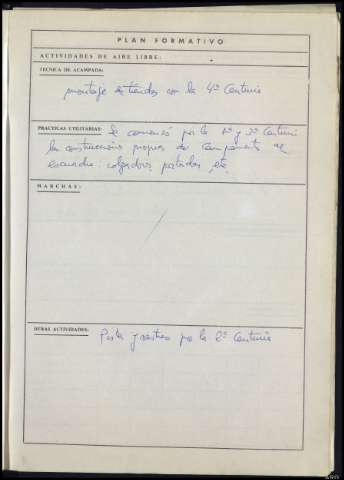 PLAN FORMATIVO
ACTIVIDADES DE AIRE LIBRE:
TECNICA DE ACAMPADA:
montaje de tiendas con la 4ª Centuria
PRACTICAS UTILITARIAS: Se comenzó por la 1ª y 3ª Centuria
las construcciones propias de Campamento de
escuadra: colgadores, portadas, etc.
MARCHAS:
OTRAS ACTIVIDADES: Pistas y rastreo por la 2ª Centuria